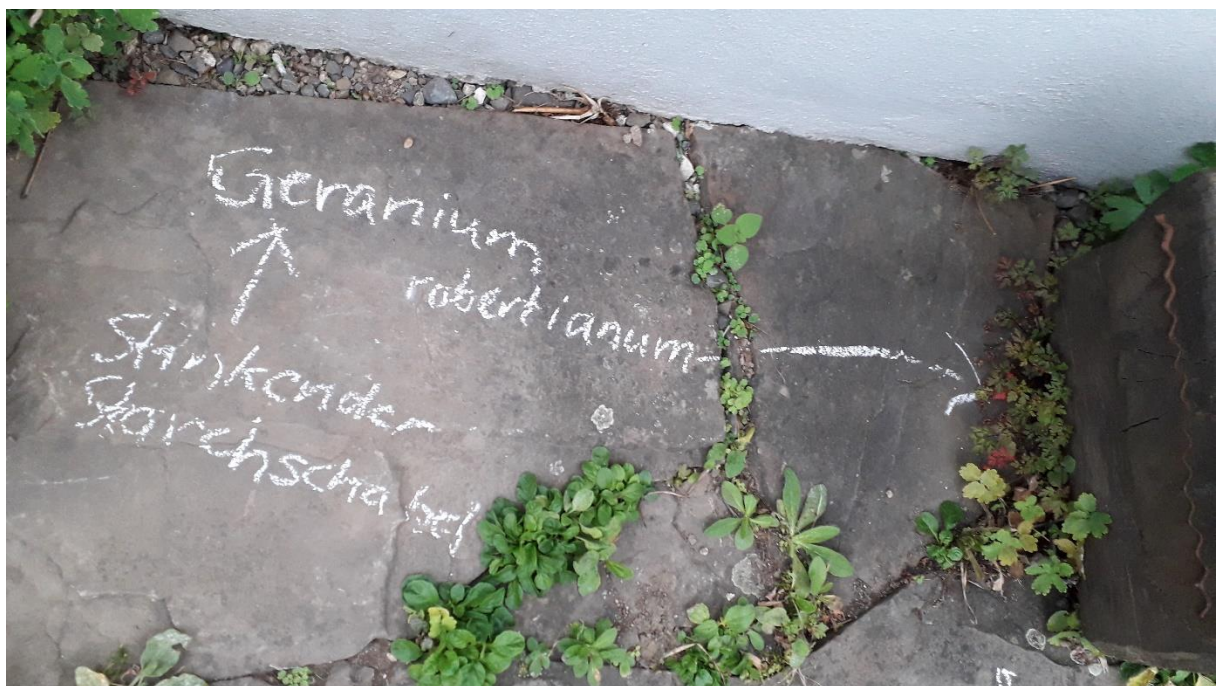 Geranium
robertianum
Stinkender
Storchschabel